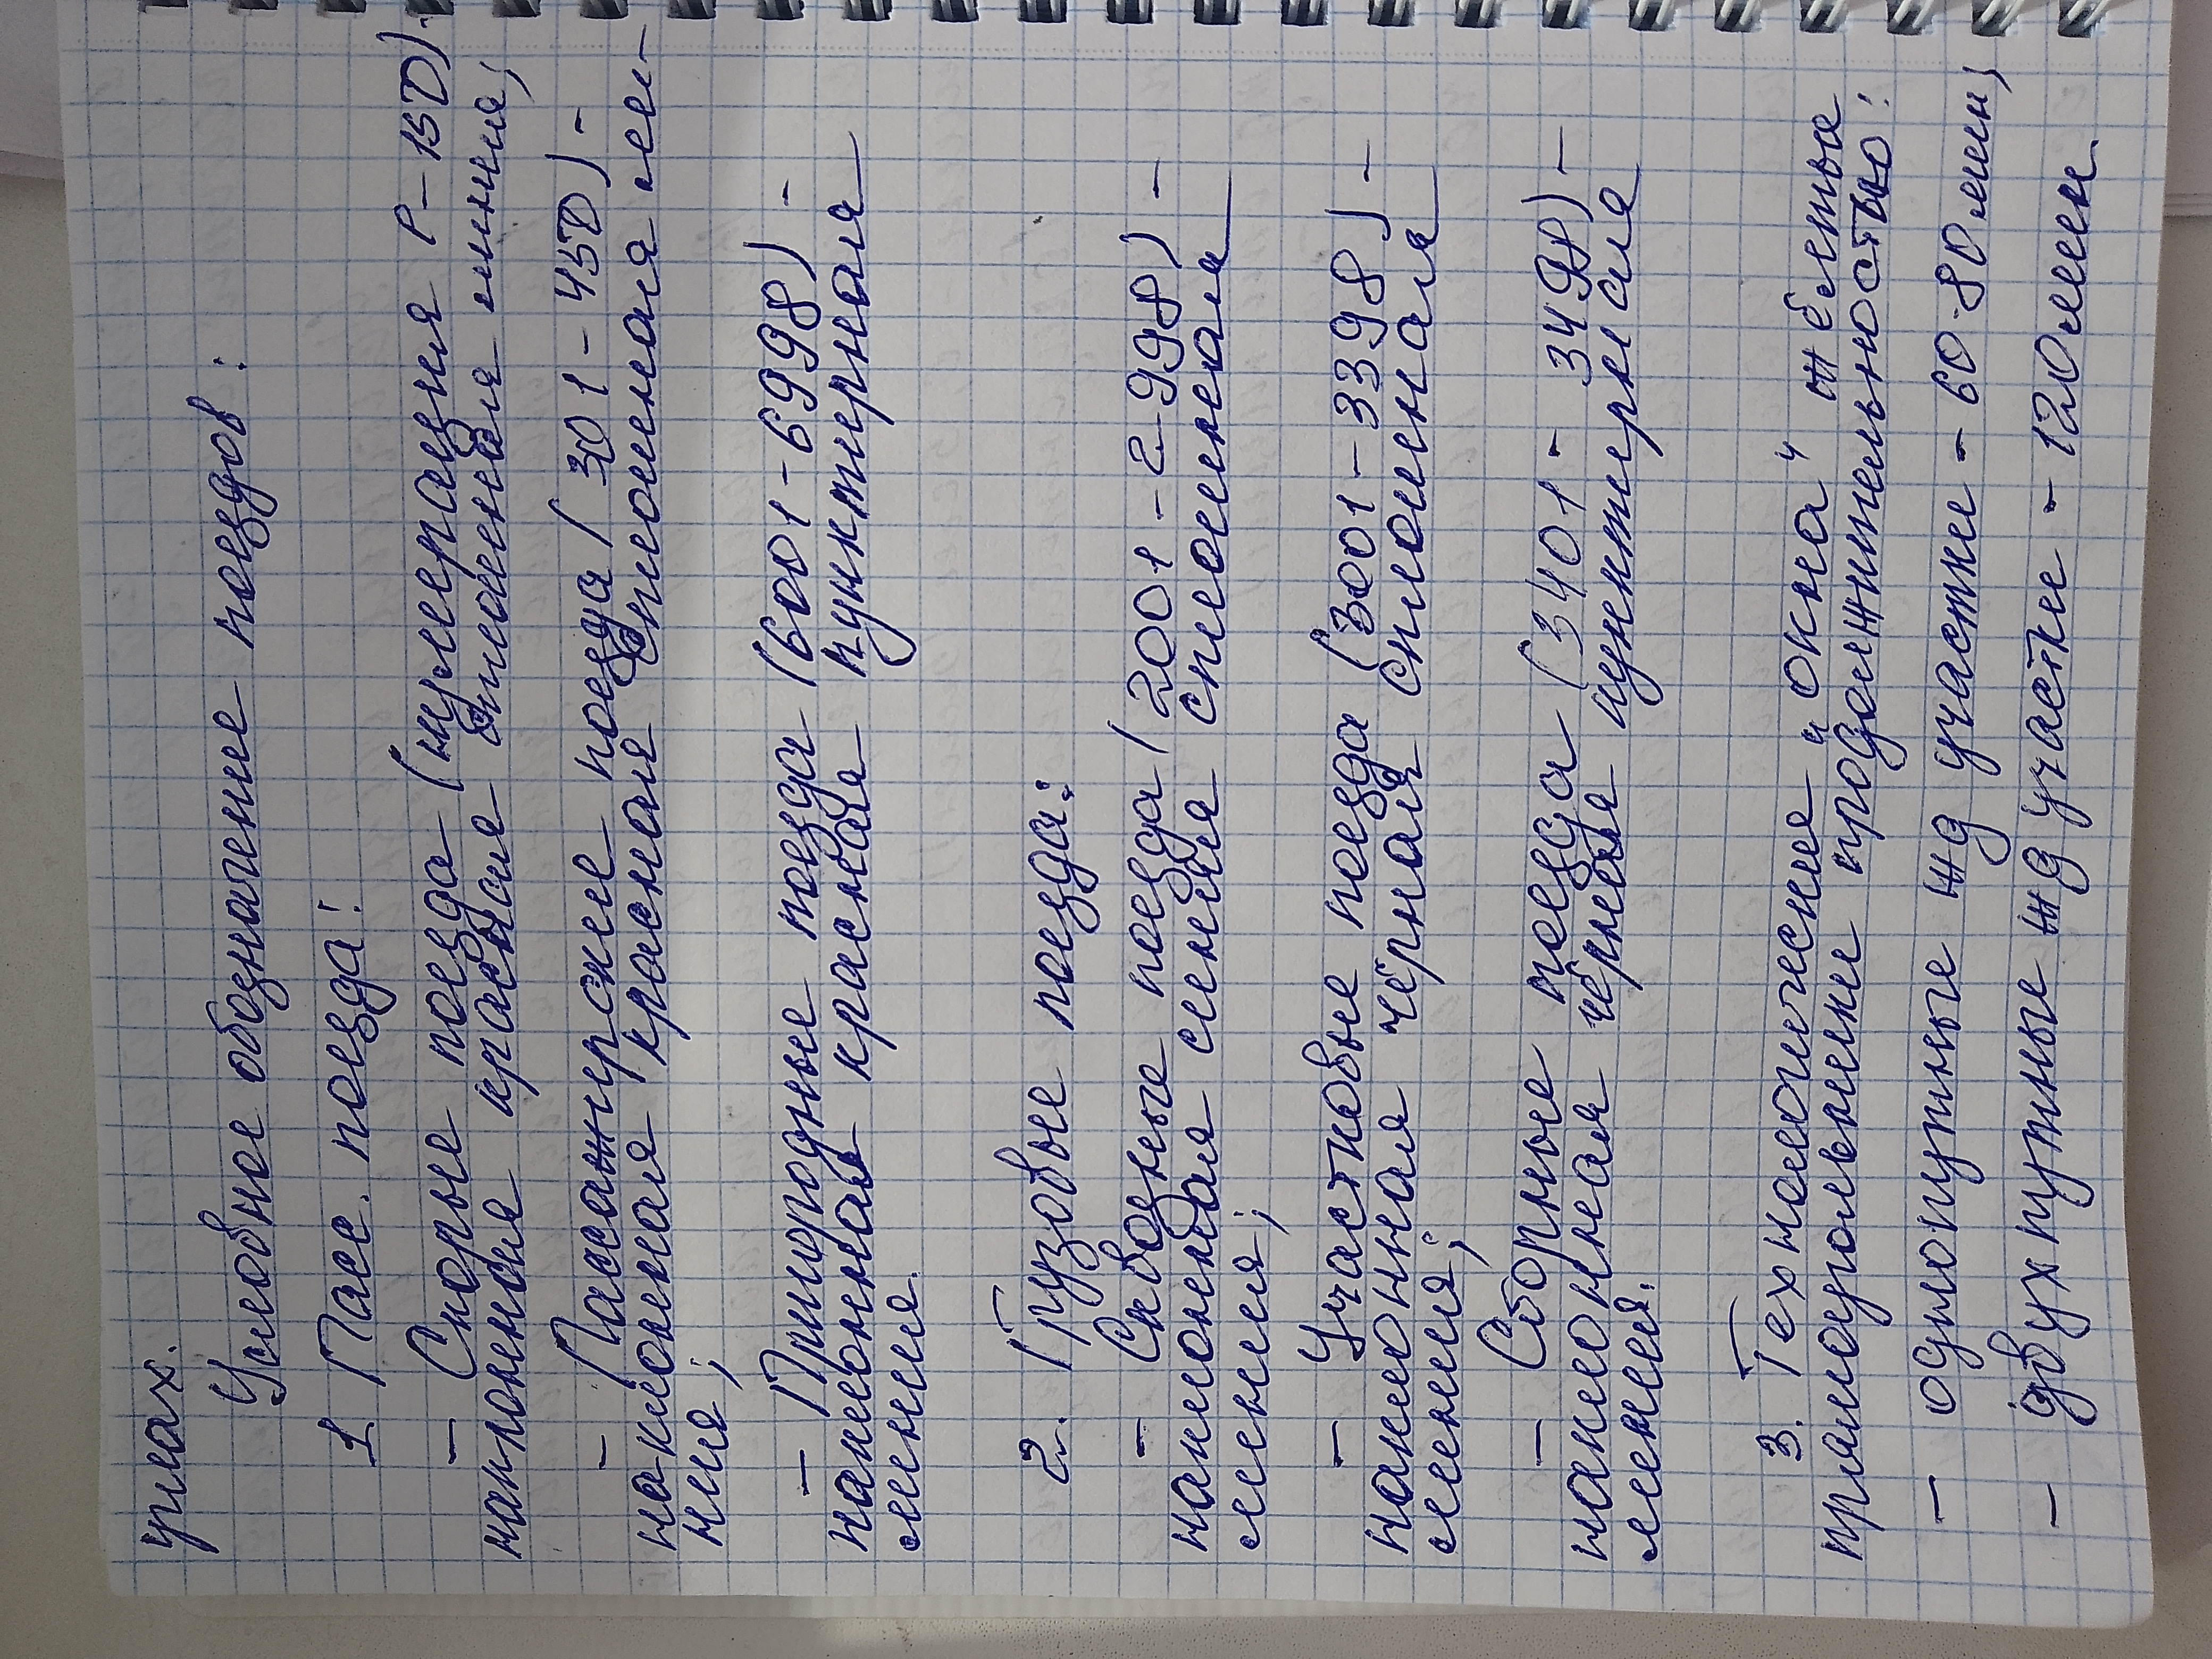 уплах.
Условное обозначение поездов:
1 Пасс. поезда:
- Скорые поезда (нумерация Р-150).
наклонная красная двойная линия;
- Пассажирские поезда (301-450) -
наклонная красная сплошная ли-
ния;
- Пригородные поезда (6001-6998) -
наклонная красная пунктирная
линия.
2. Грузовые поезда:
- Сквозные поезда (2001-2998) -
наклонная синяя сплошная
линия;
- Участковые поезда (3001-3398) -
наклонная чёрная сплошная
линия;
- Сборные поезда (3401-3498) -
наклонная чёрная пунктирная
линия.
3. Технологические "окна" жёлтые
прямоугольники продолжительностью:
- однопутные жд участки - 60-80 мин,
- двухпутные жд участке - 120 мин